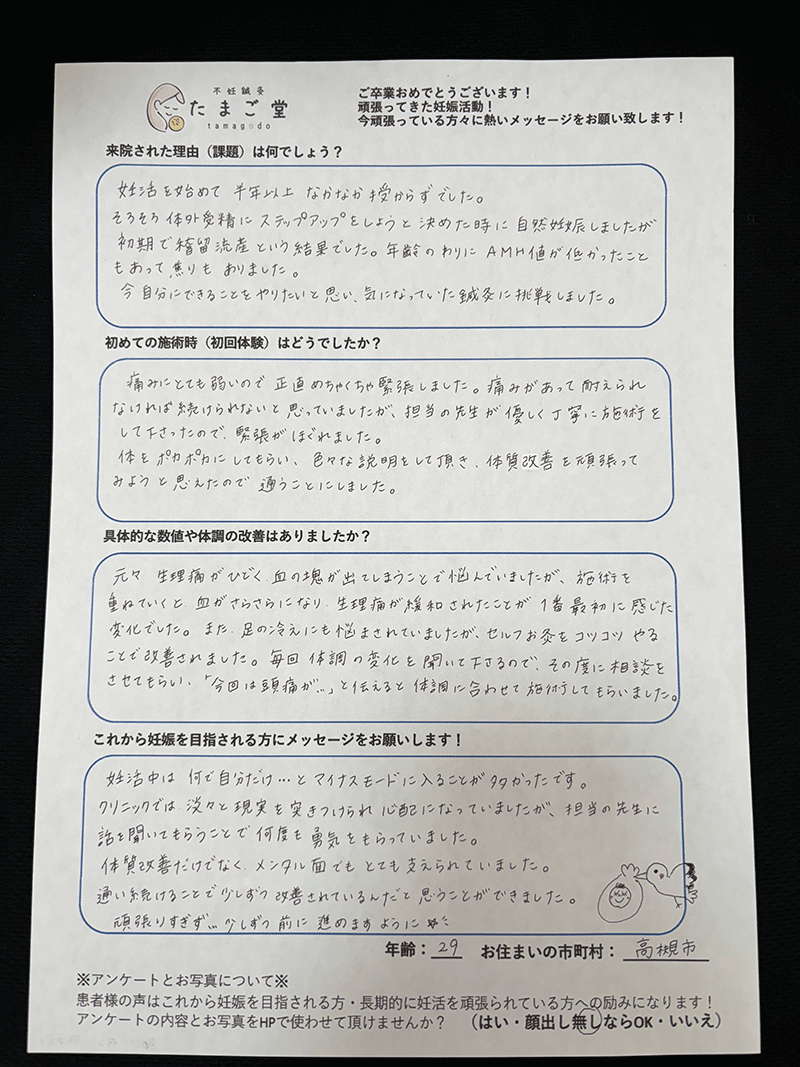 不妊鍼灸
たまご堂
tamagodo
ご卒業おめでとうございます！
頑張ってきた妊娠活動！
今頑張っている方々に熱いメッセージをお願い致します！
来院された理由（課題）は何でしょう？
妊活を始めて 半年以上 なかなか授からずでした。
そろそろ体外受精にステップアップをしようと決めた時に自然妊娠しましたが
初期で稽留流産という結果でした。年齢のわりにAMH値が低かったこと
もあって焦りもありました。
今自分にできることをやりたいと思い、気になっていた鍼灸に挑戦しました。
初めての施術時（初回体験）はどうでしたか？
痛みにとても弱いので 正直めちゃくちゃ緊張しました。痛みがあって耐えられ
なければ続けられないと思っていましたが、担当の先生が優しく丁寧に施術を
して下さったので、緊張がほぐれました。
体をポカポカにしてもらい、色々な説明をして頂き、体質改善を頑張って
みようと思えたので 通うことにしました。
具体的な数値や体調の改善はありましたか？
元々 生理痛がひどく、血の塊が出てしまうことで悩んでいましたが、施術を
重ねていくと、血がさらさらになり、生理痛が緩和されたことが 1番最初に感じた
変化でした。また、足の冷えにも悩まされていましたが、セルフお灸をコツコツやる
ことで改善されました。毎回 体調の変化を聞いて下さるので、その度に相談を
させてもらい、「今回は頭痛が…」と伝えると体調に合わせて施術してもらいました。
これから妊娠を目指される方にメッセージをお願いします！
妊活中は 何で自分だけ…とマイナスモードに入ることが多かったです。
クリニックでは 淡々と現実を突きつけられ 心配になっていましたが、担当の先生に
話を聞いてもらうことで何度も勇気をもらっていました。
体質改善だけでなく、メンタル面でもとても支えられていました。
通い続けることで少しずつ改善されているんだと思うことができました。
頑張りすぎず… 少しずつ前に進めますように
年齢：29 お住まいの市町村：高槻市
※アンケートとお写真について※
患者様の声はこれから妊娠を目指される方・長期的に妊活を頑張られている方への励みになります！
アンケートの内容とお写真をHPで使わせて頂けませんか？ （はい・顔出し無しならOK・いいえ）